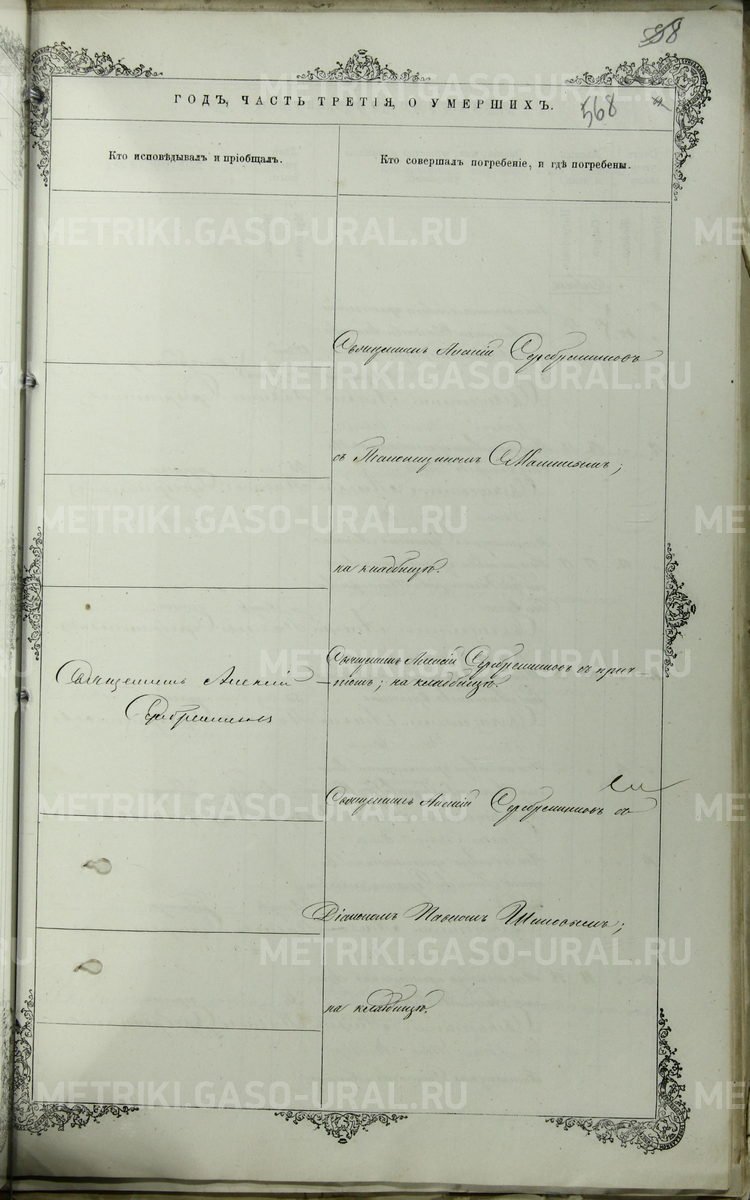 568
ГОДЪ, ЧАСТЬ ТРЕТІЯ, О УМЕРШИХЪ.
Кто исповѣдывалъ и пріобщалъ.
Кто совершалъ погребеніе, и гдѣ погребены.
METRIKI.GASO-URAL.RU
Священникъ Алексій Серебренниковъ
съ
на кладбищѣ.
Священникъ Алексій Серебренниковъ съ прич-
томъ; на кладбищѣ.
Священникъ Алексій
Серебренниковъ
Священникъ Алексій Серебренниковъ съ
Діакономъ Павломъ
на кладбищѣ.